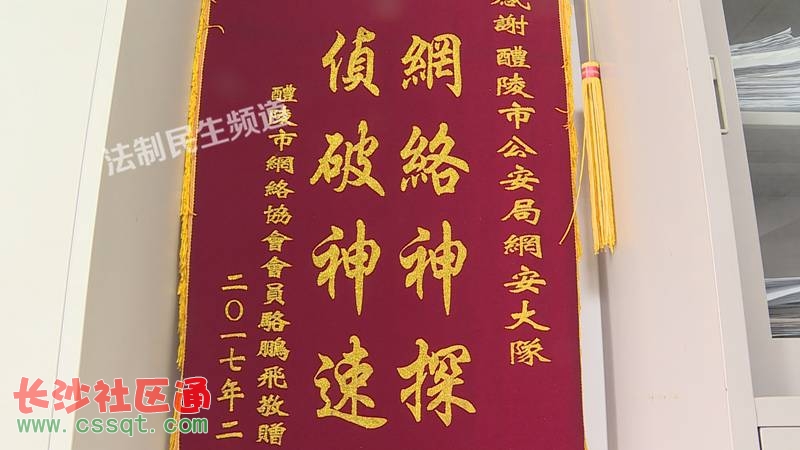 感謝醴陵市公安局網安大隊
網絡神探
偵破神速
醴陵市網絡協會會員駱鵬飛敬贈
二〇一七年二
法制民生频道
长沙社区通
www.cssqt.com